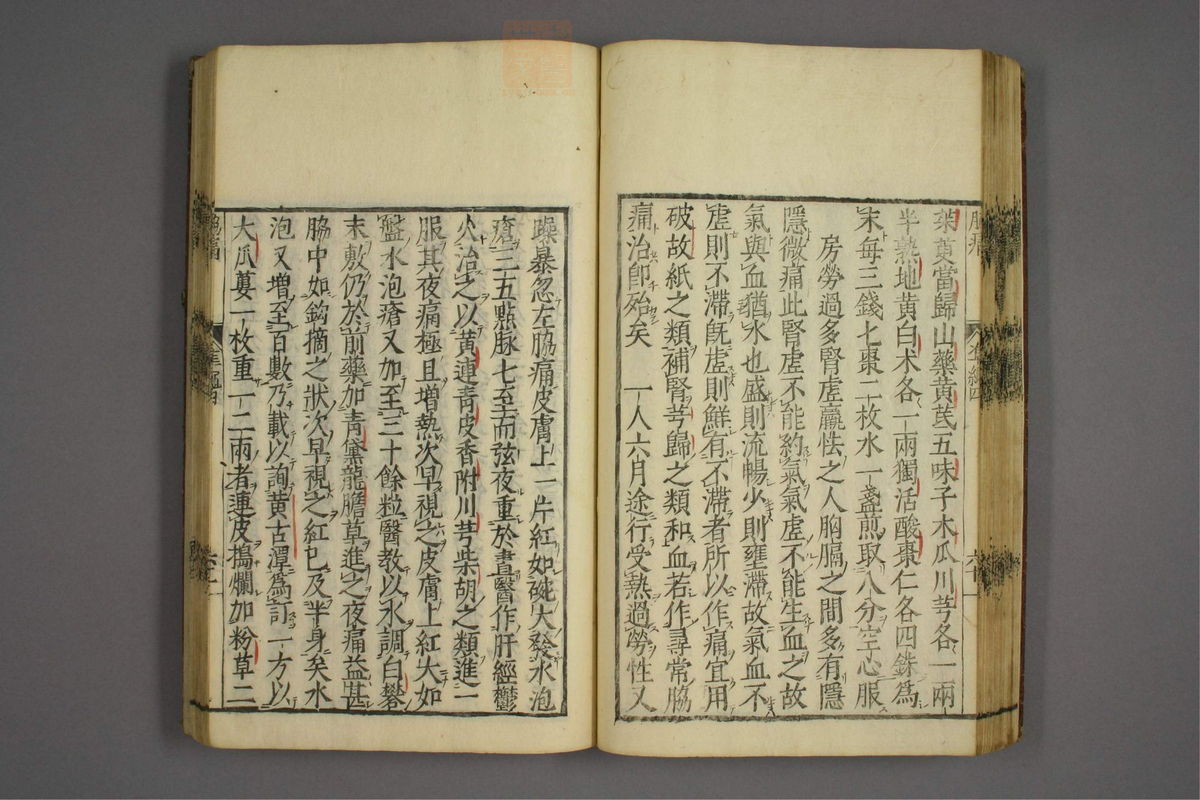 茱萸當歸山藥黄芪五味子木瓜川芎各一兩
半熟地黄白术各一兩獨活酸棗仁各四銖爲
末每三錢七棗二枚水一盞煎取八分空心服
房勞過多腎虚羸怯之人胸膈之間多有隱
隱微痛此腎虚不能約氣氣虚不能生血之故
氣與血猶水也盛則流暢少則壅滯故氣血不
虚則不滯旣虚則鮮有不滯者所以作痛宜用
破故紙之類補腎芎歸之類和血若作尋常脇
痛治卽殆矣 一人六月途行受熱過勞性又
躁暴忽左脇痛皮膚上一片紅如碗大發水泡
瘡三五點脉七至而弦夜重於晝醫作肝經鬱
火治之以黄連青皮香附川芎柴胡之類進一
服其夜痛極且增熱次早視之皮膚上紅大如
盤水泡瘡又加至三十餘粒醫教以水調白礬
末敷仍於前藥加青黛龍膽草進之夜痛益甚
脇中如鈎摘之狀次早視之紅已及半身矣水
泡又增至百數乃載以詢黄古潭爲訂一方以
大瓜蔞一枚重一二兩者連皮搗爛加粉草二
脇痛